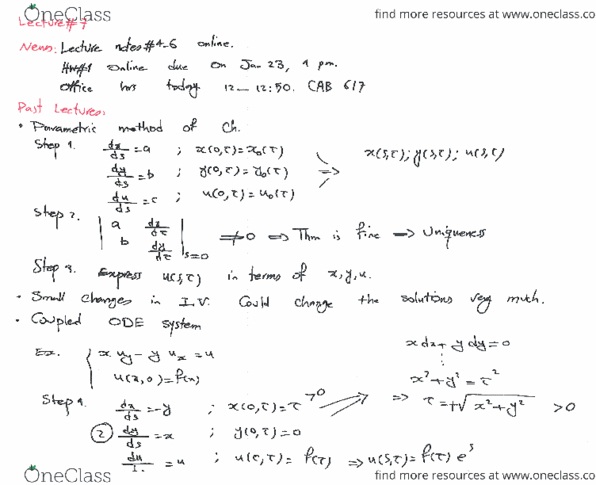 OneClass
find more resources at www.oneclass.co
Lecture #7
News: Lecture notes #4-6 online.
HW#1 online due on Jan 23, 1 pm.
Office hrs today 12 — 12:50. CAB 617
Past Lectures:
• Parametric method of Ch.
Step 1. dx/ds = a ; x(0,τ)=x₀(τ)
dy/ds = b ; y(0,τ)=y₀(τ) ⇒ x(s,τ); y(s,τ); u(s,τ)
du/ds = c ; u(0,τ)=u₀(τ)
Step 2. | a dx/dτ b dy/dτ |s=0 ≠0 ⇔ Thm is fine ⇒ Uniqueness
Step 3. Express u(s,τ) in terms of x,y,u.
• Small changes in I.V. Could change the solutions very much.
• Coupled ODE system
Ex. { x uy - y ux = u
u(x,0) = f(x)
x dx + y dy = 0
x² + y² = τ²
⇒ τ = +√x² + y² > 0
Step 1. dx/ds = -y ; x(0,τ)=τ >0
② dy/ds = x ; y(0,τ)=0
du = u ; u(0,τ) = f(τ) ⇒ u(s,τ) = f(τ) eˢ
OneClass
find more resources at www.oneclass.co